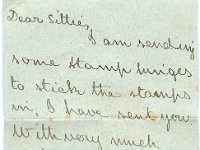 Dear Sittie,
I am sending
some stamp hinges
to stick the stamps
in, I have sent you.
With very much